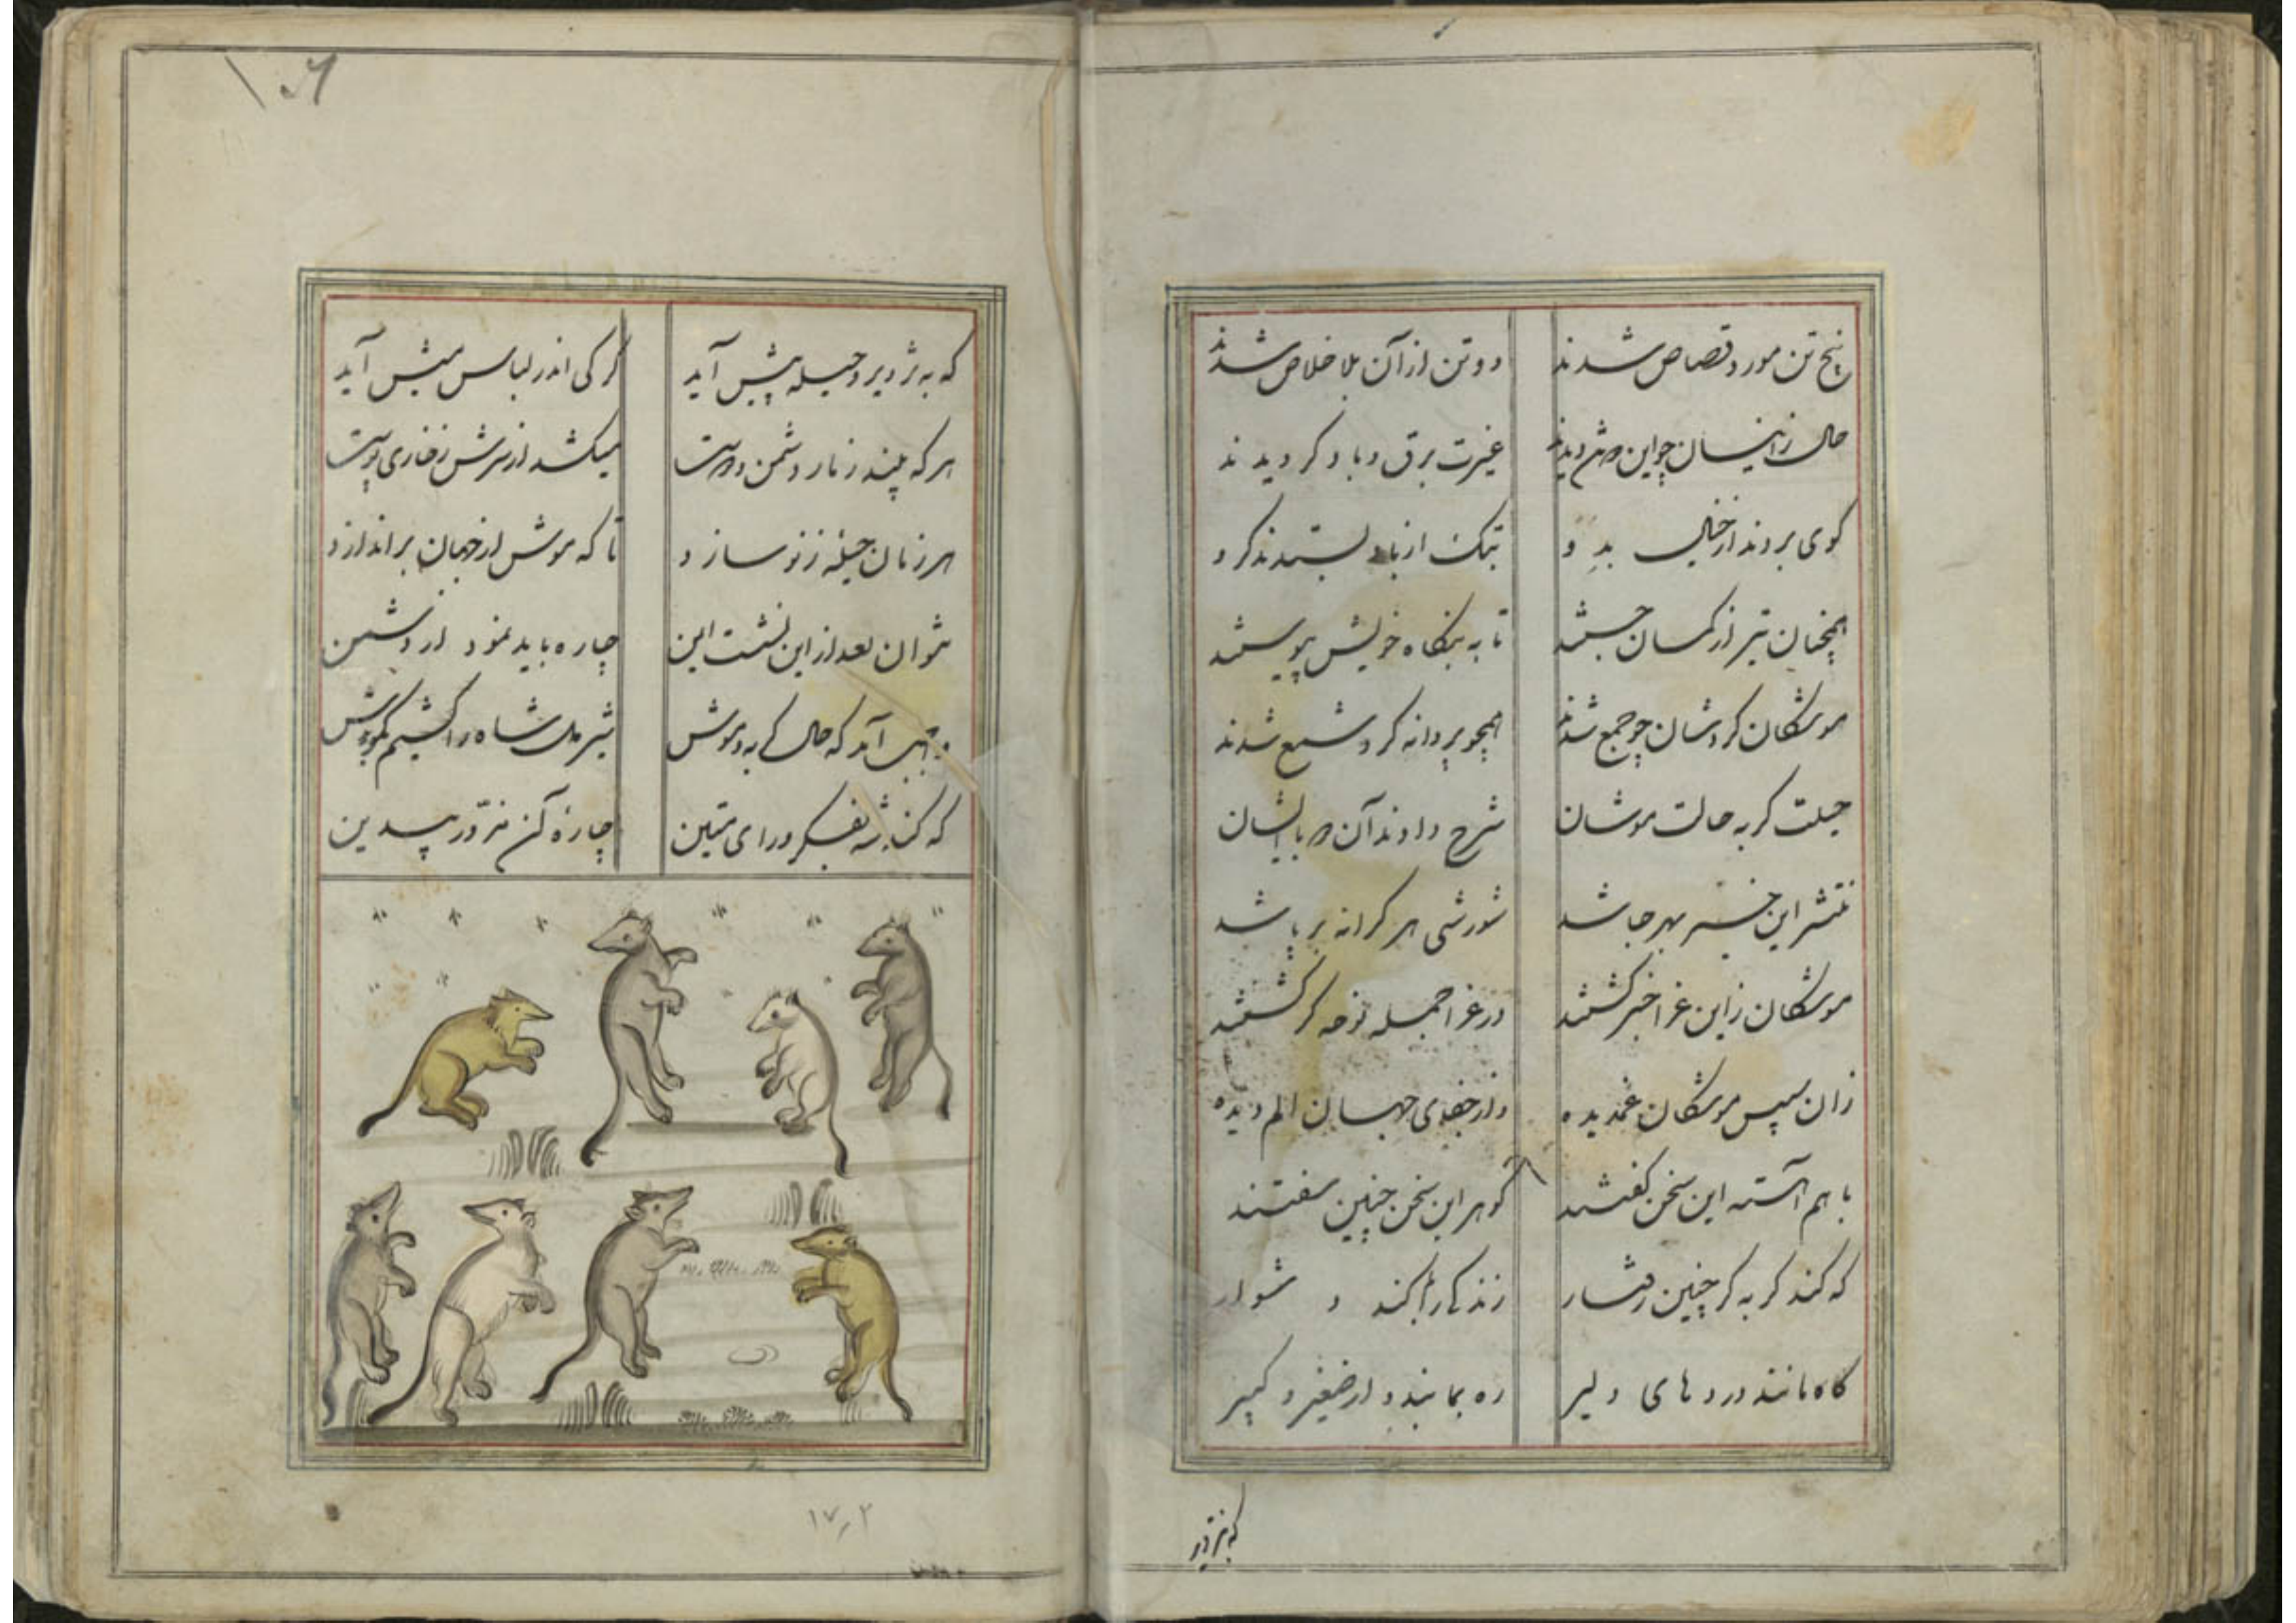 پنج تن مورد قصاص شدند دو تن از آن بلا خلاص شدند
حال زاینسان چو این دو تن دیدند غیرت برق و باد گردیدند
گوی بردند از خیال بدو بتک از باد بستدند گرو
همچنان تیر از کمان جستند تا به بنگاه خویش پیوستند
موشکان گردشان چو جمع شدند همچو پروانه گرد شمع شدند
حیلت گربه حالت موشان شرح دادند آن دو با ایشان
منتشر این خبر بهر جا شد شورشی هر کرانه بر پا شد
موشکان زاین عزا خبر گشتند در عزا جمله نوحه گر گشتند
زان سپس موشکان غمدیده وز جفای جهان الم دیده
با هم آهسته این سخن گفتند گوهر این سخن چنین سفتند
که کند گربه گر چنین رفتار زندگی را کند دشوار
گاه مانند دزدهای دلیر ره بما بندد از صغیر و کبیر
که بتزویر
۱۰۶
که به تزویر و حیله پیش آید گرگی اندر لباس میش آید
هر که بیند ز نار دشمن و دوست میکشد از سرش ز خاری پوست
هر زمان حیلهٔ ز نو سازد تا که موش از جهان براندازد
نتوان بعد از این نشست این چاره باید نمود از دشمن
آید که حال گربه و موش شیردل شاه را کشیم بگوش
که کند شه بفکر و رای متین چارهٔ آن مزور بیدین
۱۷٫۲